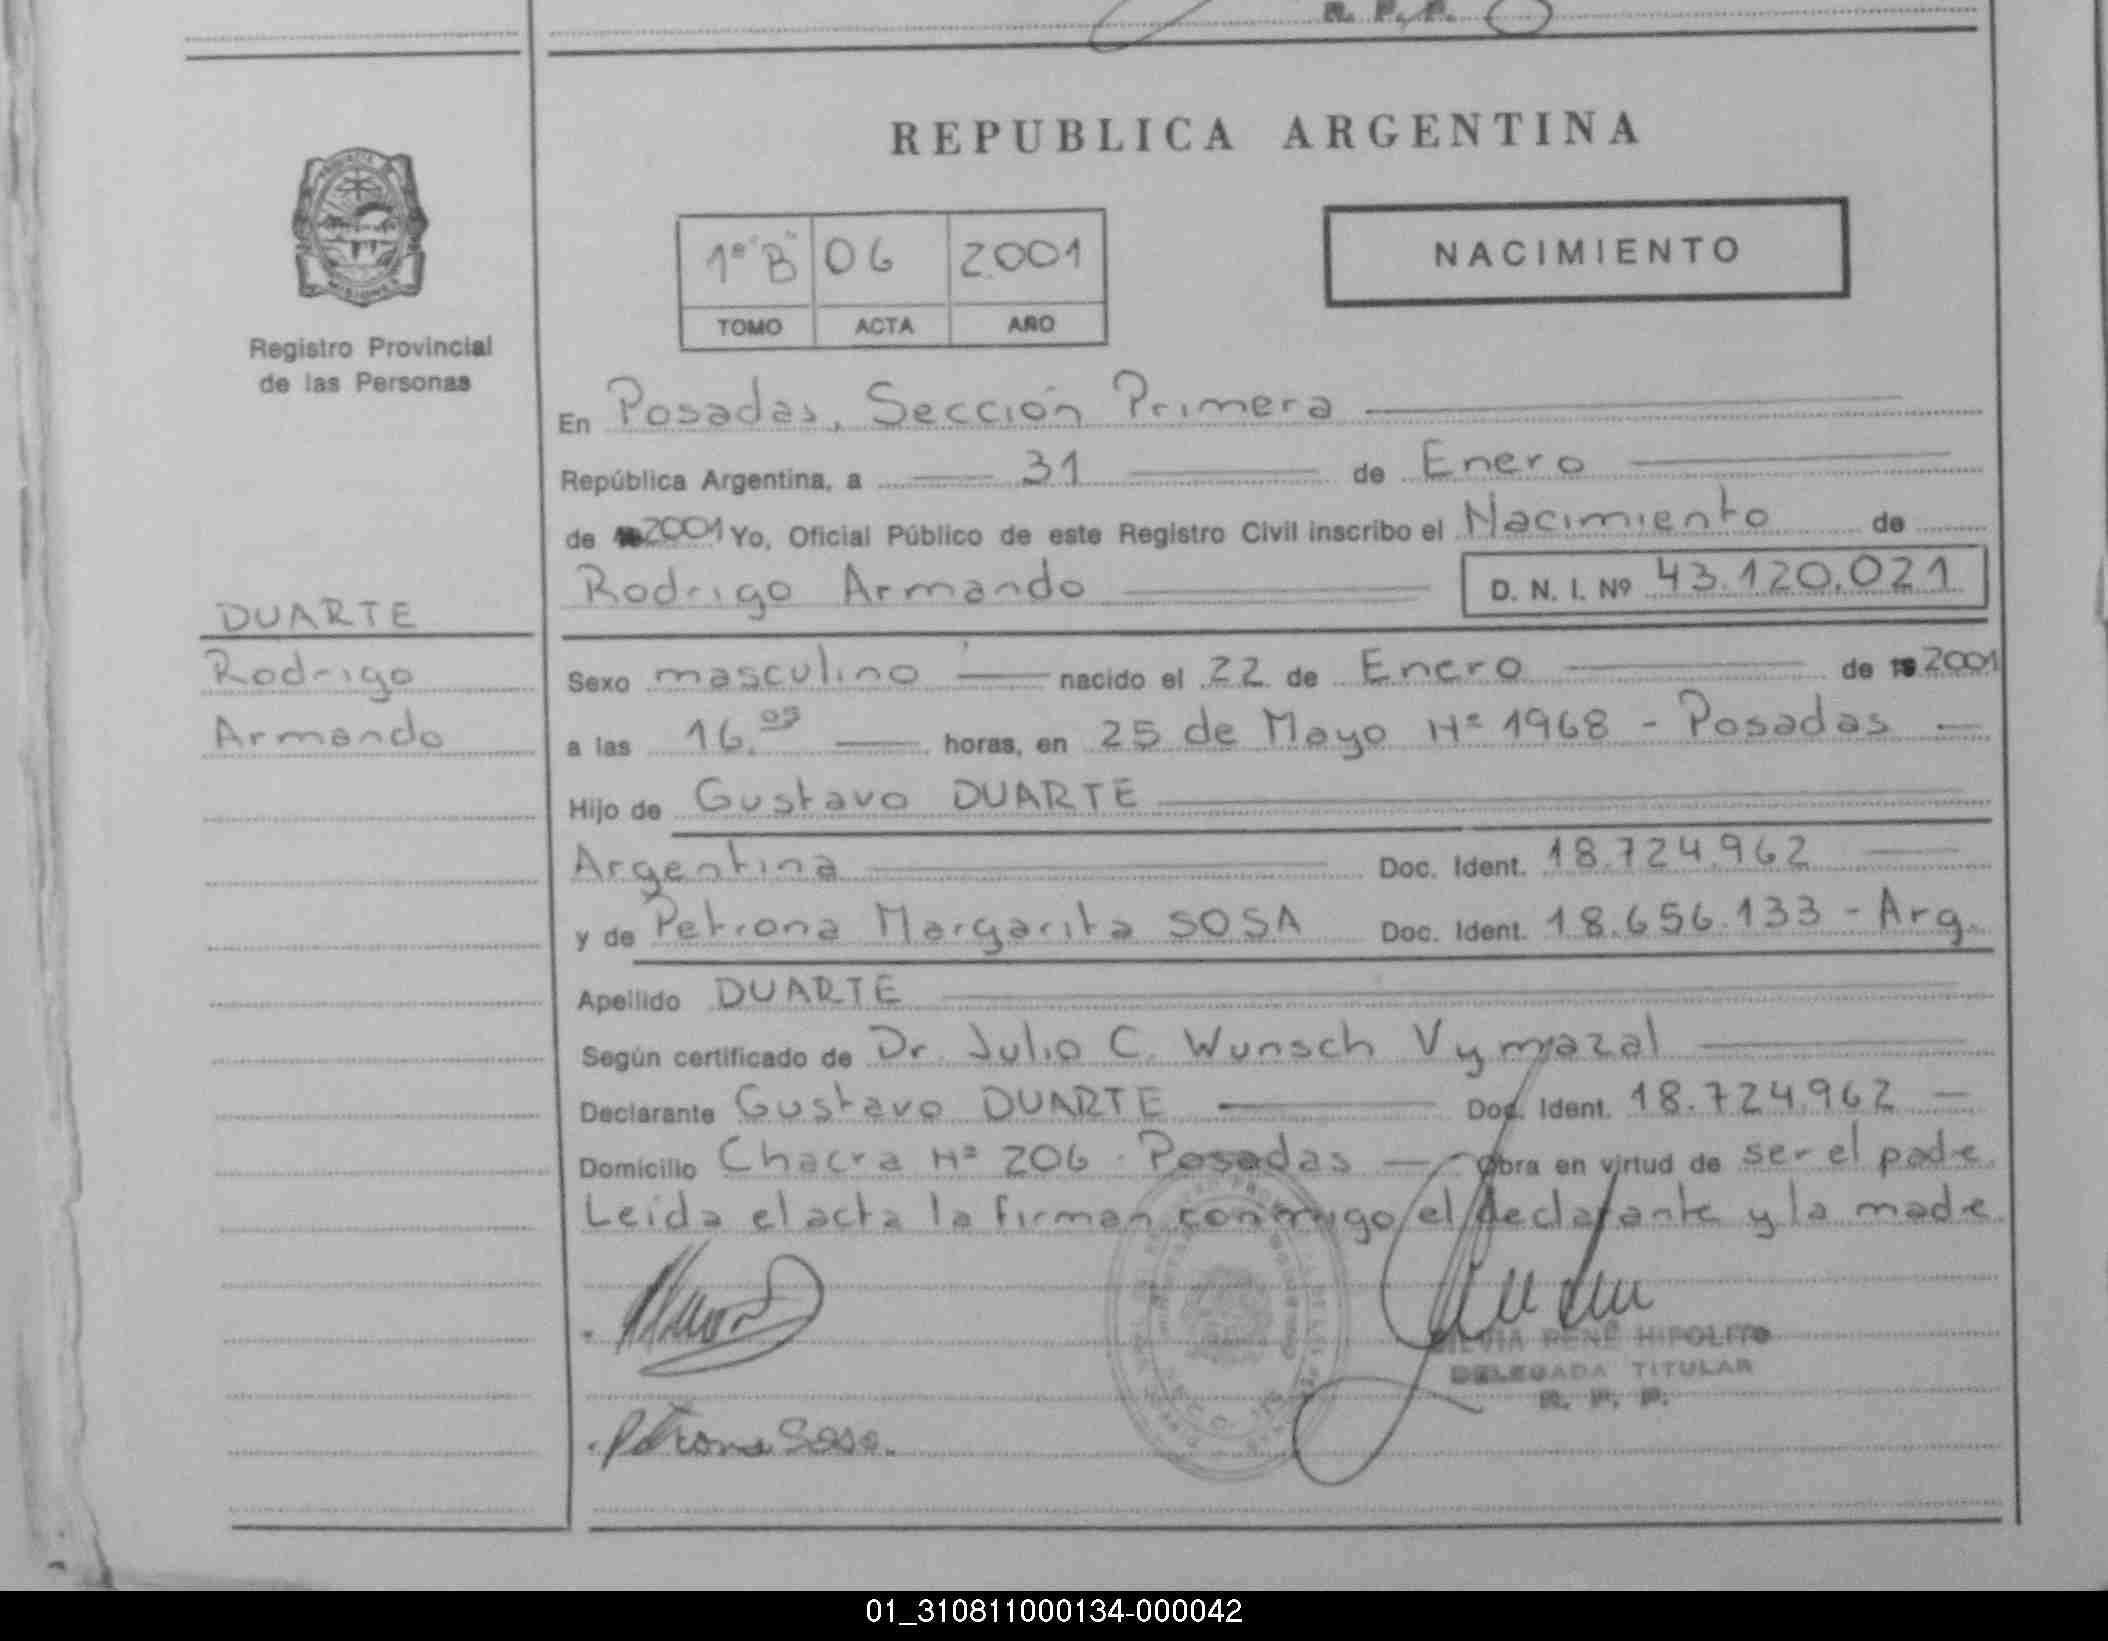 R. P. P.
REPUBLICA ARGENTINA
PROVINCIA
MISIONES
Registro Provincial
de las Personas
1º "B" 06 2001
TOMO ACTA AÑO
NACIMIENTO
En Posadas, Sección Primera
República Argentina, a 31 de Enero
de 2001 Yo, Oficial Público de este Registro Civil inscribo el Nacimiento de
Rodrigo Armando D. N. I. Nº 43.120.021
DUARTE
Rodrigo
Armando
Sexo masculino nacido el 22 de Enero de 19 2001
a las 16.05 horas, en 25 de Mayo Nº 1968 - Posadas
Hijo de Gustavo DUARTE
Argentina Doc. Ident. 18.724.962
y de Petrona Margarita SOSA Doc. Ident. 18.656.133 - Arg.
Apellido DUARTE
Según certificado de Dr. Julio C. Wunsch Vymazal
Declarante Gustavo DUARTE Doc. Ident. 18.724.962
Domicilio Chacra Nº 206 - Posadas Obra en virtud de ser el padre.
Leida el acta la firman conmigo el declarante y la madre.
SILVIA RENÉ HIPOLITO
DELEGADA TITULAR
R. P. P.
Petrona Sosa.
01_310811000134-000042